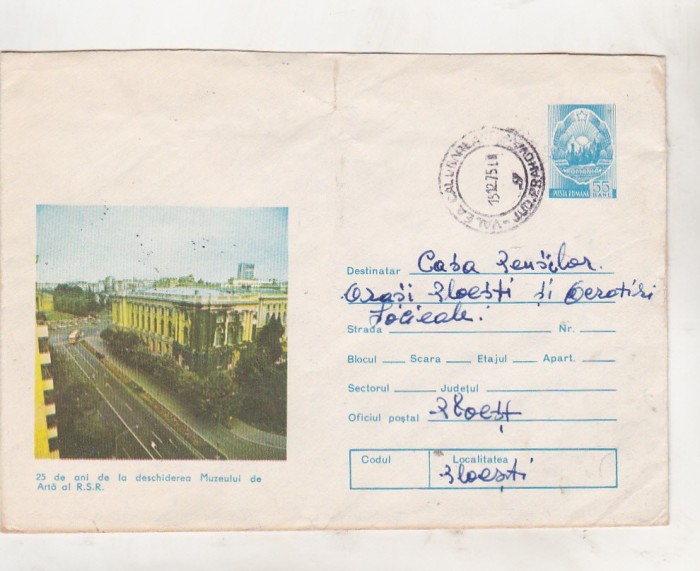 POSTA ROMANA 55 BANI
VALEA CALUGAREASCA
15.12.75
Destinatar Casa Pensiilor.
Orași Ploești și Ocrotiri
Sociale.
Strada Nr.
Blocul Scara Etajul Apart.
Sectorul Județul
Oficiul poștal Ploești
Codul Localitatea
Ploești
25 de ani de la deschiderea Muzeului de
Artă al R.S.R.